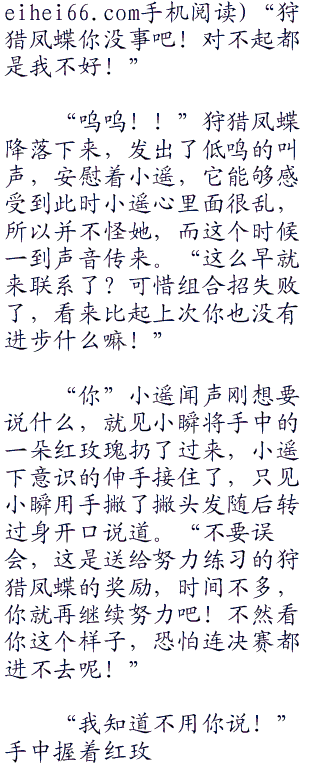 eihei66.com手机阅读)“狩
猎凤蝶你没事吧！对不起都
是我不好！”
“呜呜！！”狩猎凤蝶
降落下来，发出了低鸣的叫
声，安慰着小遥，它能够感
受到此时小遥心里面很乱，
所以并不怪她，而这个时候
一到声音传来。“这么早就
来联系了？可惜组合招失败
了，看来比起上次你也没有
进步什么嘛！”
“你”小遥闻声刚想要
说什么，就见小瞬将手中的
一朵红玫瑰扔了过来，小遥
下意识的伸手接住了，只见
小瞬用手撇了撇头发随后转
过身开口说道。“不要误
会，这是送给努力练习的狩
猎凤蝶的奖励，时间不多，
你就再继续努力吧！不然看
你这个样子，恐怕连决赛都
进不去呢！”
“我知道不用你说！”
手中握着红玫